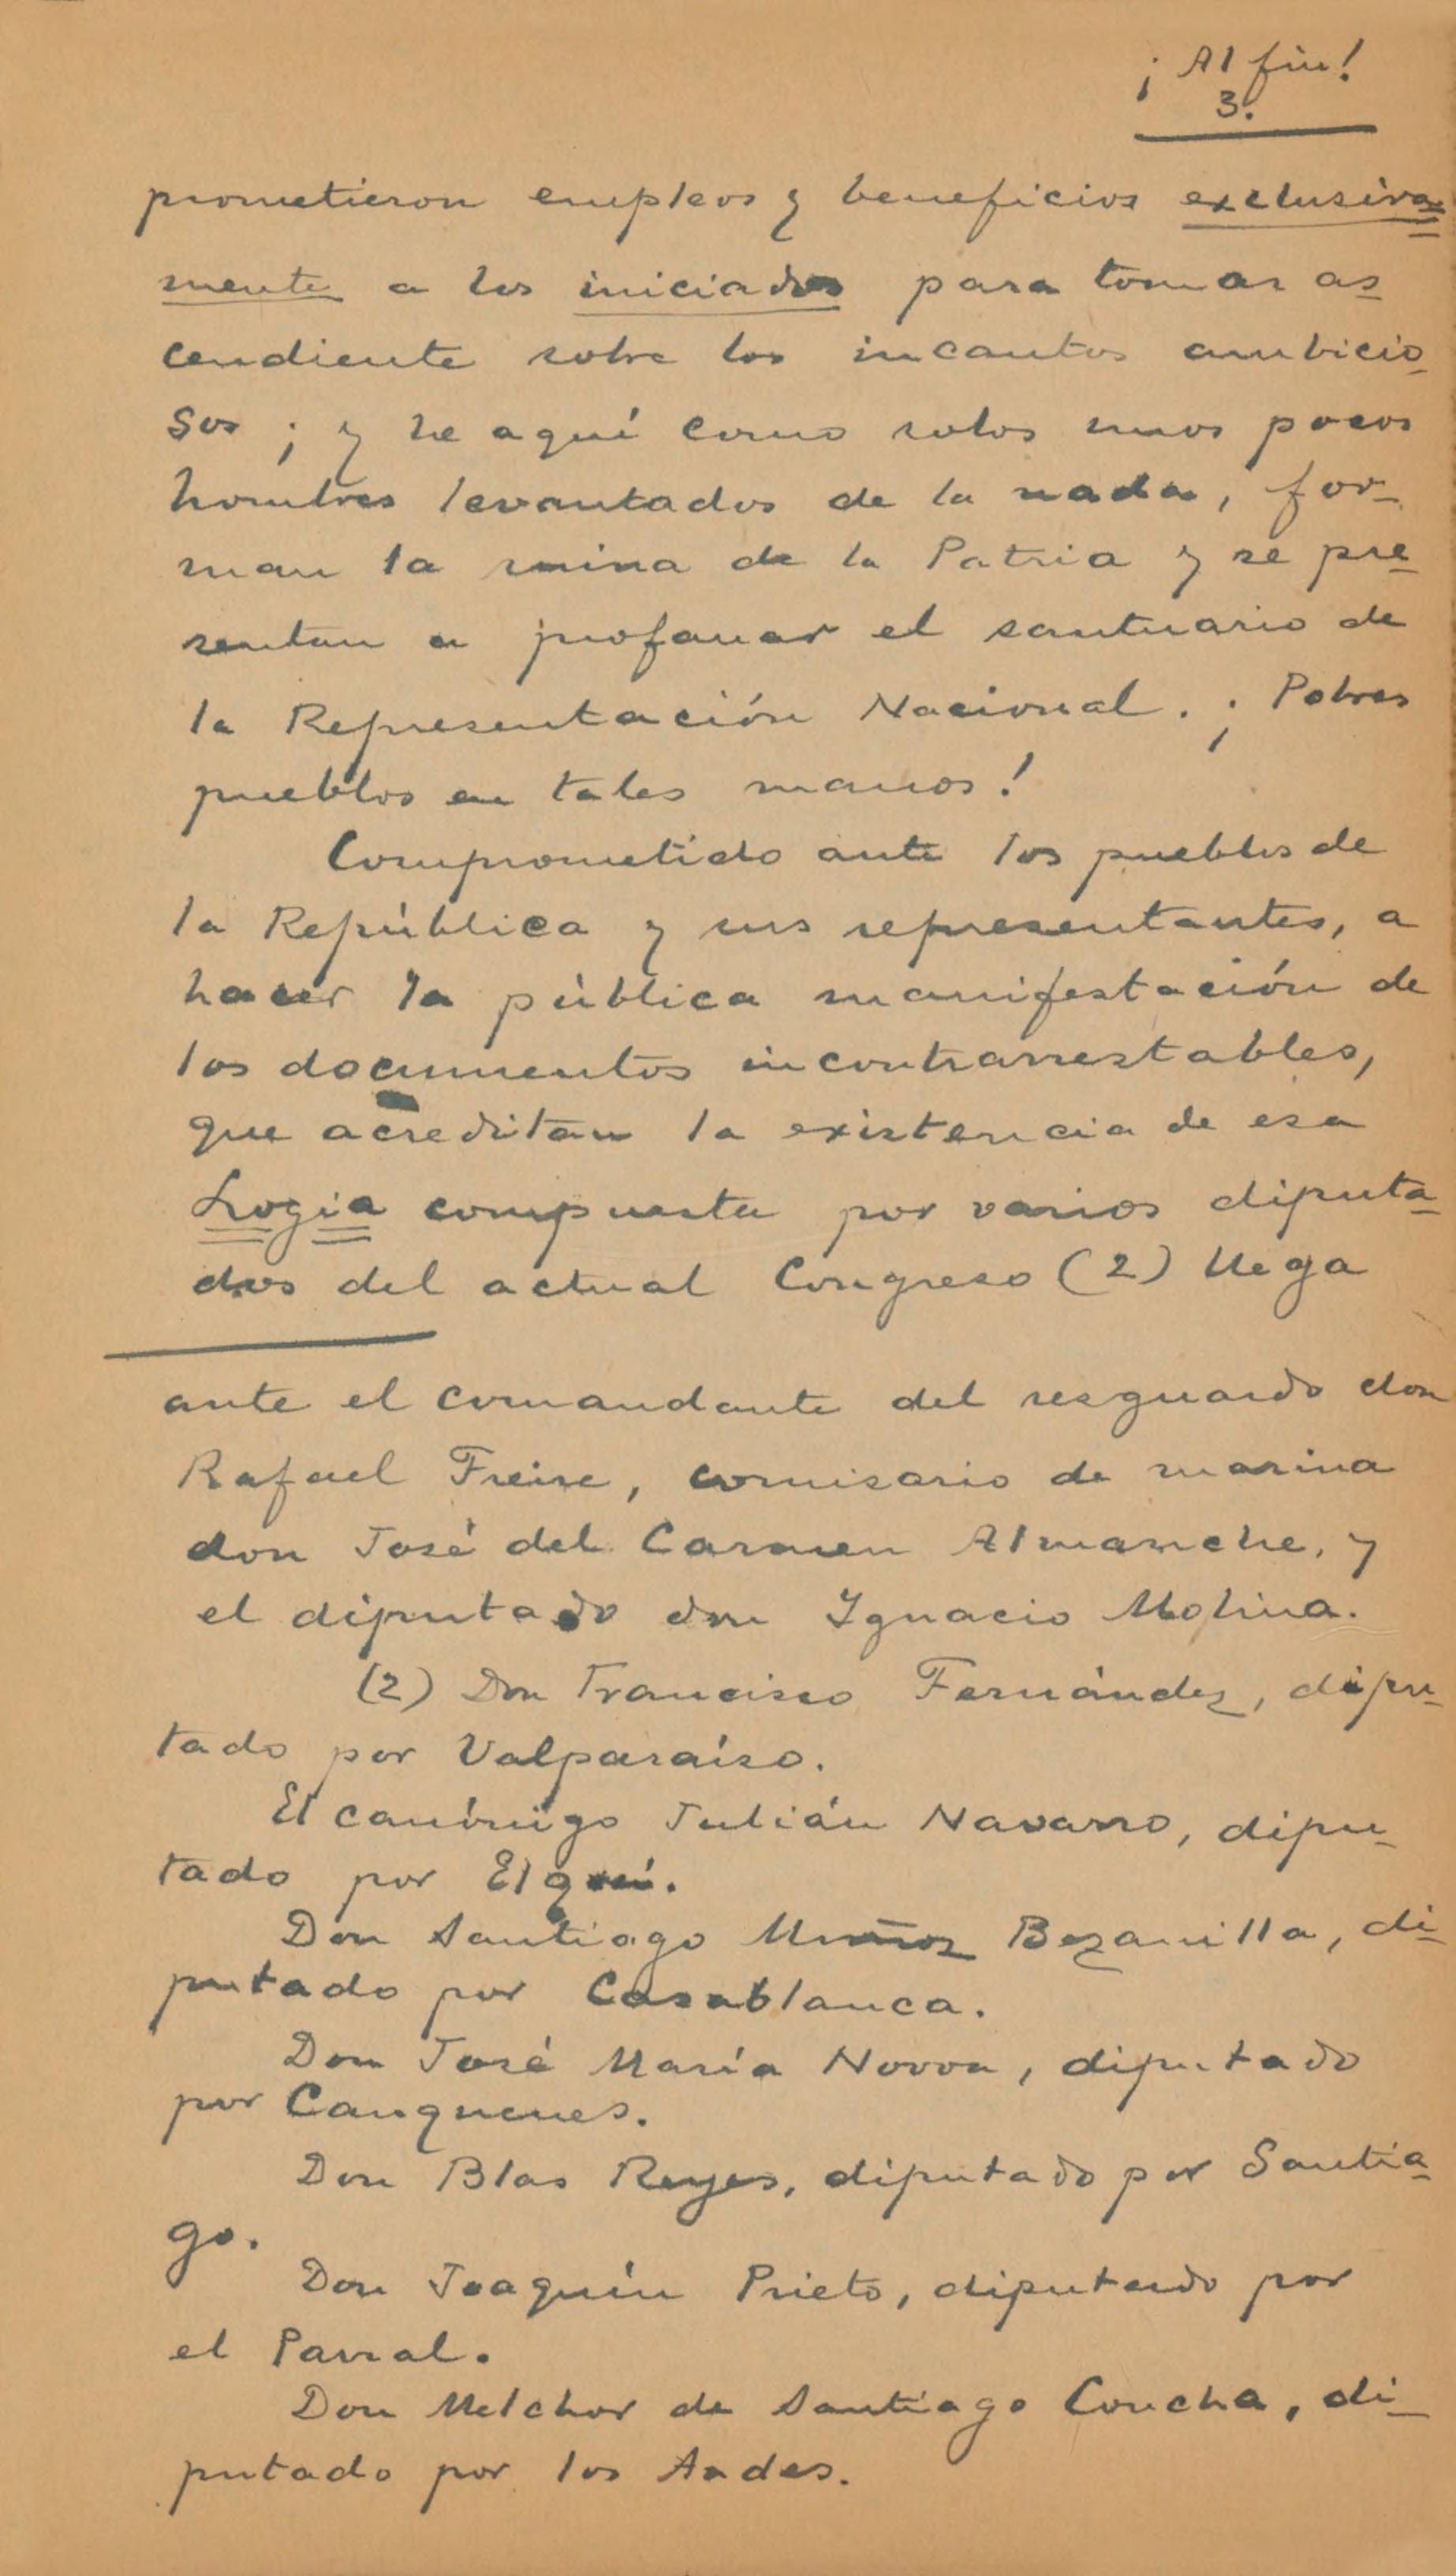 ¡Al fin!
3.
prometieron empleos y beneficios exclusiva-
mente a los iniciados para tomar as-
cendiente sobre los incautos ambicio-
sos; y he aquí como solos unos pocos
hombres levantados de la nada, for-
man la ruina de la Patria y se pre-
sentan a profanar el santuario de
la Representación Nacional. ¡Pobres
pueblos en tales manos!
Comprometido ante los pueblos de
la República y sus representantes, a
hacer la pública manifestación de
los documentos incontrarrestables,
que acreditan la existencia de esa
Logia compuesta por varios diputa-
dos del actual Congreso (2) llega
ante el comandante del resguardo don
Rafael Freire, comisario de marina
don José del Carmen Almanche, y
el diputado don Ignacio Molina.
(2) Don Francisco Fernández, dipu-
tado por Valparaíso.
El canónigo Julián Navarro, dipu-
tado por Elquí.
Don Santiago Muñoz Bezanilla, di-
putado por Casablanca.
Don José María Novoa, diputado
por Cauquenes.
Don Blas Reyes, diputado por Santia-
go.
Don Joaquín Prieto, diputado por
el Parral.
Don Melchor de Santiago Concha, di-
putado por los Andes.